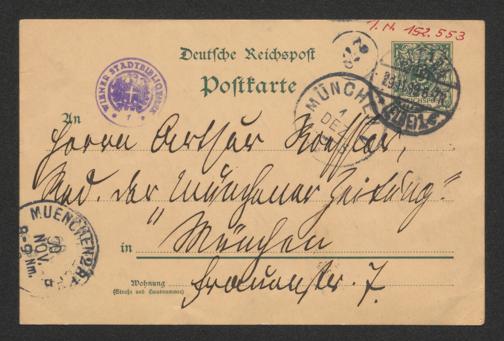 I. N. 152.553
Deutsche Reichspost
Postkarte
WIENER STADTBIBLIOTHEK
MÜNCH
1
DEZ
An
Herrn Arthur Roessler,
Red. der "Münchener Zeitung"
in München
Wohnung
(Straße und Hausnummer)
Frauenstr. 7.
MUENCHENDORF
NOV.
8-9 Nm.